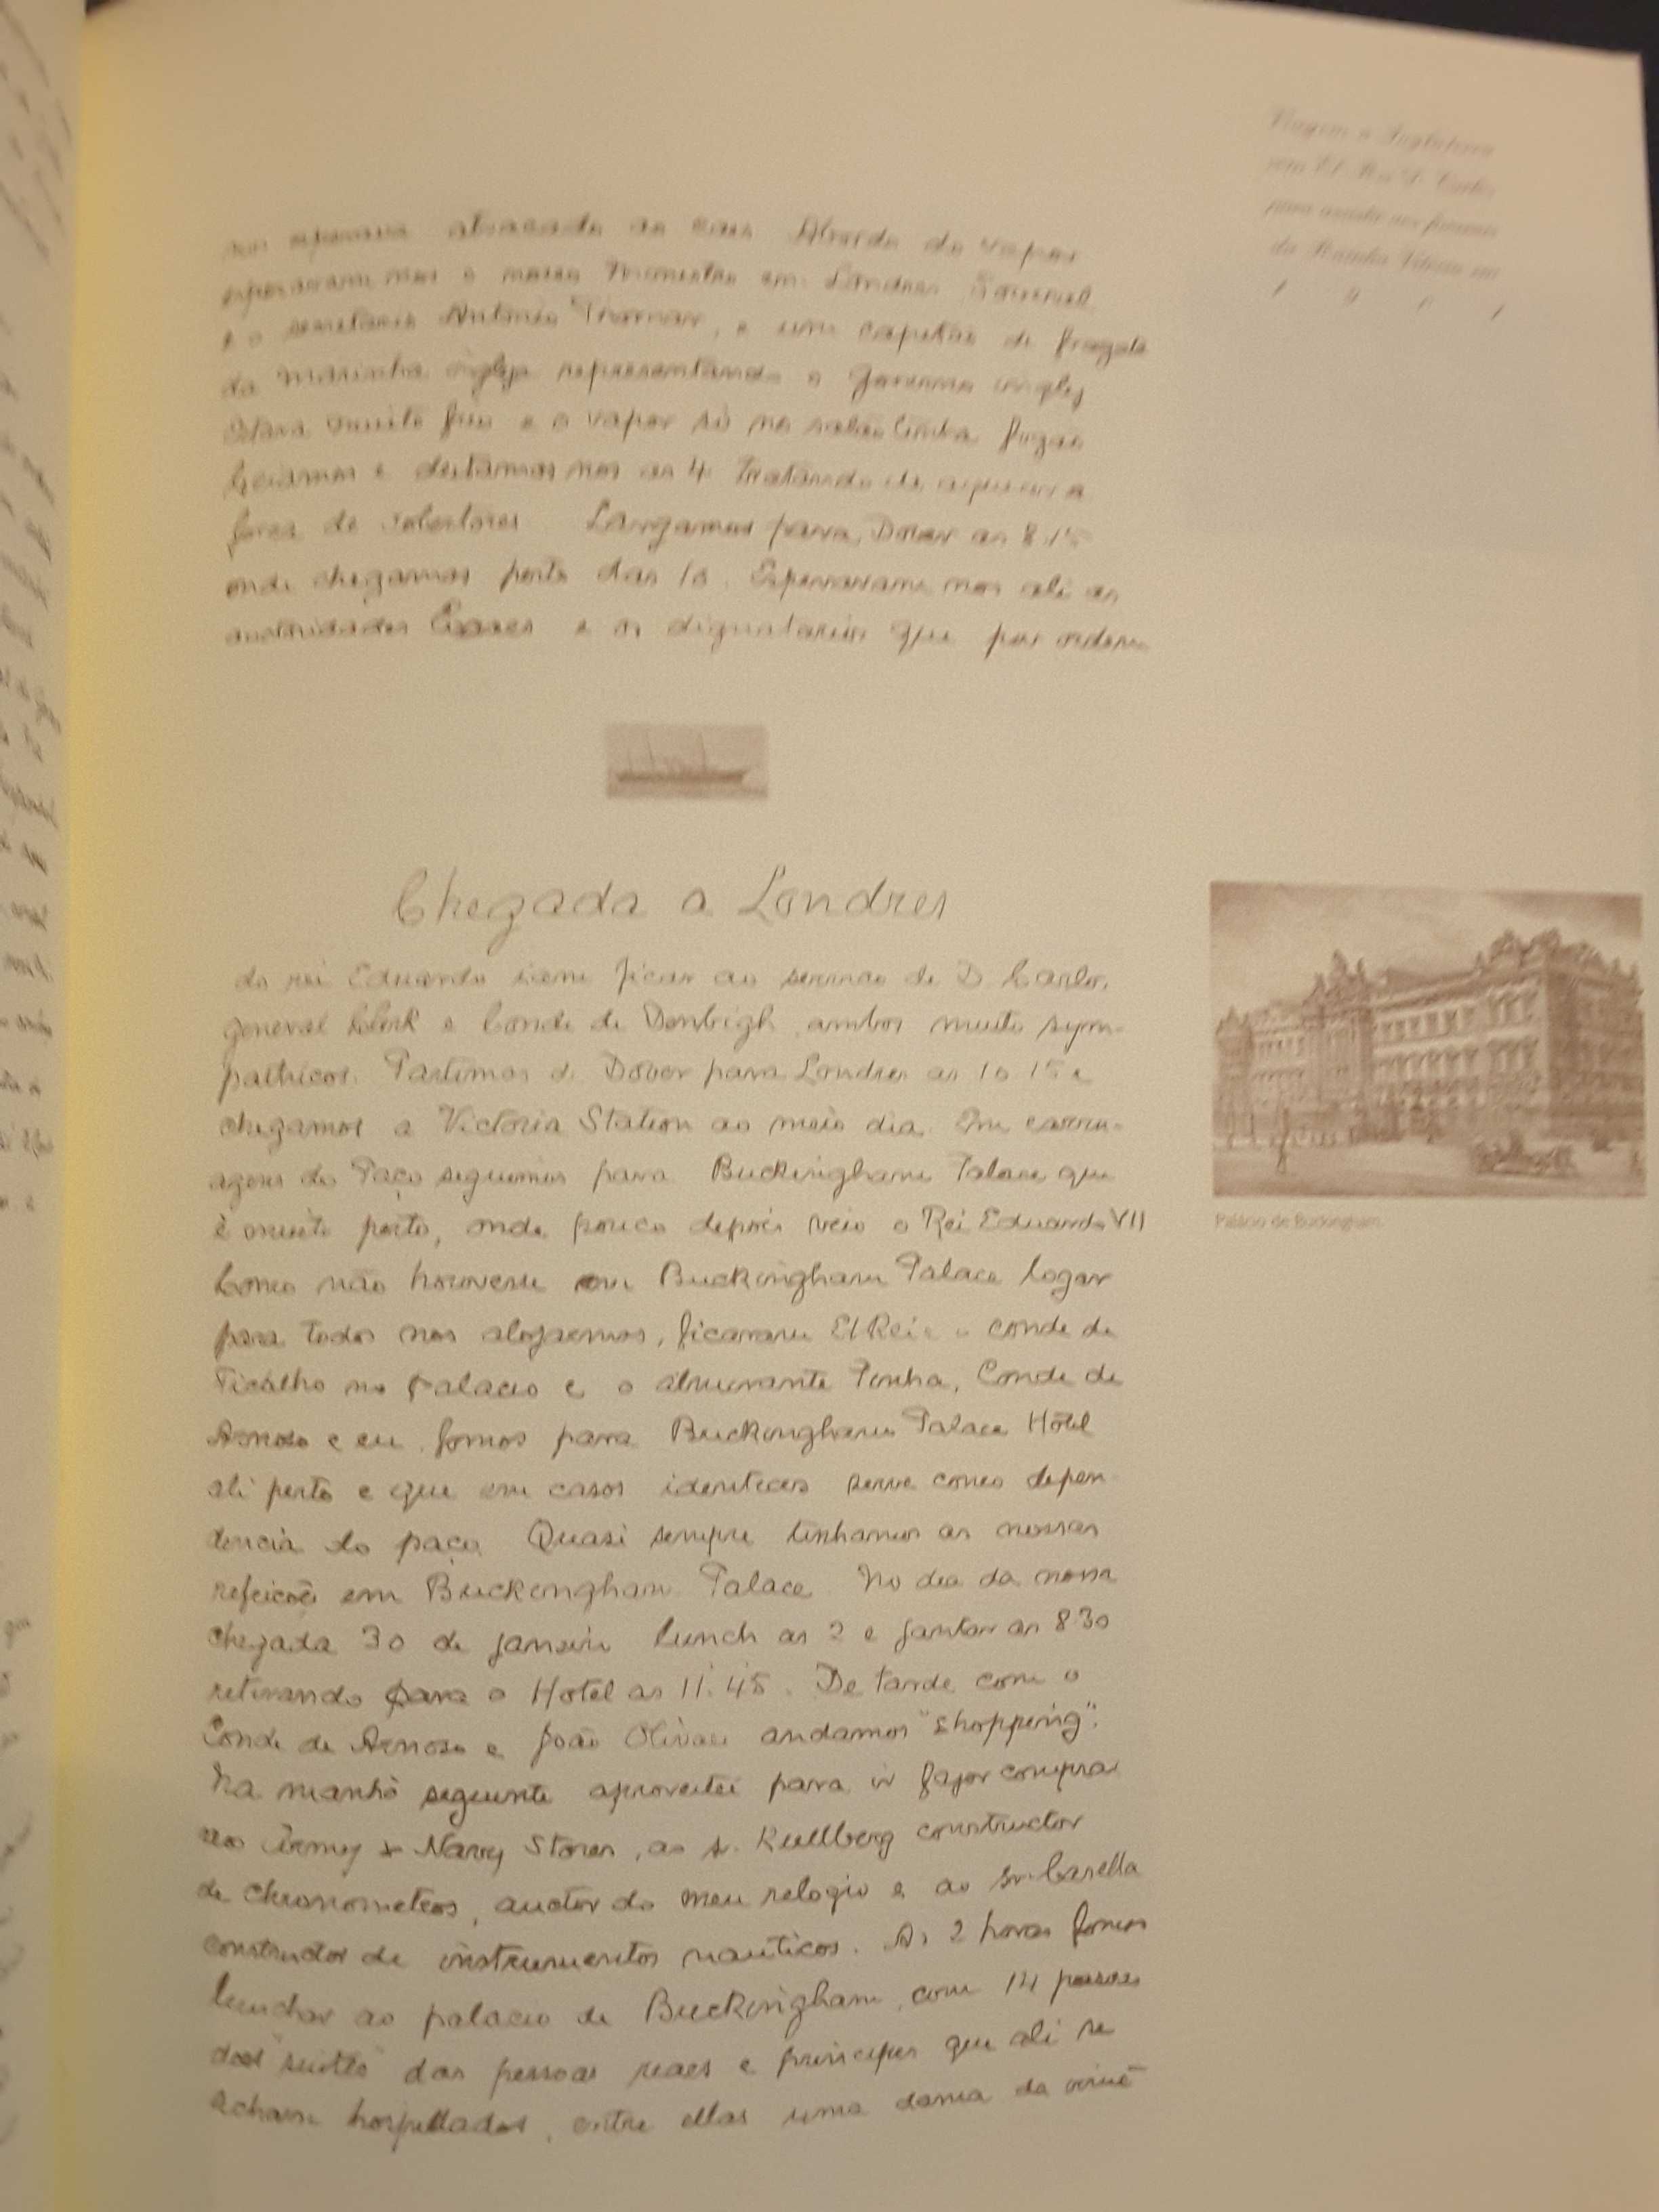 nos esperava atracado ao caes. Abordo do vapor
esperavam nos o nosso ministro em Londres Soveral
e o secretario Antonio Thomar, e um capitão de fragata
da marinha ingleza representando o governo inglez
Estava muito frio e o vapor só no salão tinha fogão
Ceiamos e deitamos nos as 4 tratando de aquecer a
força de cobertores. Largamos para Dover as 8.15
onde chegamos perto das 10. Esperavam nos ali as
auctoridades e os dignatarios que por ordem
Chegada a Londres
do rei Eduardo iam ficar ao serviço de D. Carlos,
general Clerk e Conde de Denbigh ambos muito sym-
pathicos. Partimos de Dover para Londres as 10 15 e
chegamos a Victoria Station ao meio dia. Em carru-
agens do Paço seguimos para Buckingham Palace que
é muito perto, onde pouco depois veio o Rei Eduardo VII
Como não houvesse em Buckingham Palace logar
para todos nos alojarmos, ficaram El Rei e o conde de
Ficalho no palacio e o almirante Penha, Conde de
Arnoso e eu fomos para Buckingham Palace Hôtel
ali perto e que em casos identicos serve como depen-
dencia do paço. Quasi sempre tinhamos as nossas
refeicões em Buckingham Palace. No dia da nossa
chegada 30 de janeiro lunch as 2 e jantar as 8.30
retirando para o Hotel as 11.45. De tarde com o
Conde de Arnoso e João Olivaes andamos "shopping".
Na manhã seguinte aproveitei para ir fazer compras
aos Army & Navy Stores, ao s. Kullberg constructor
de chronometros, auctor do meu relogio e ao sr. Casella
constructor de instrumentos nauticos. As 2 horas fomos
lunchar ao palacio de Buckingham, com 14 pessoas
das "suites" das pessoas reaes e principes que ali se
acham hospedados, entre ellas uma dama da
Viagem a Inglaterra
com El-Rei D. Carlos
para assistir aos funeraes
da Rainha Vitoria em
1 9 0 1
Palácio de Buckingham.